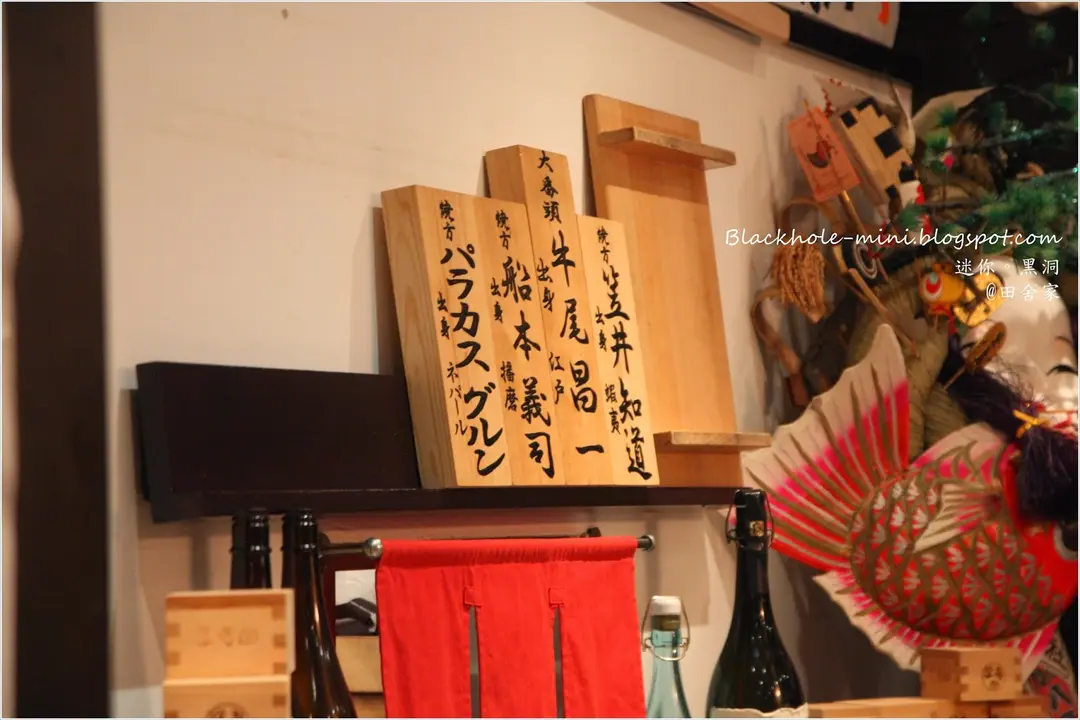 大番頭
牛尾昌一
出身 江戸
焼方
笠井知道
出身 蝦夷
焼方
船本義司
出身 播磨
焼方
パラカス グルン
出身 ネパール
Blackhole-mini.blogspot.com
迷你。黑洞
@田舍家